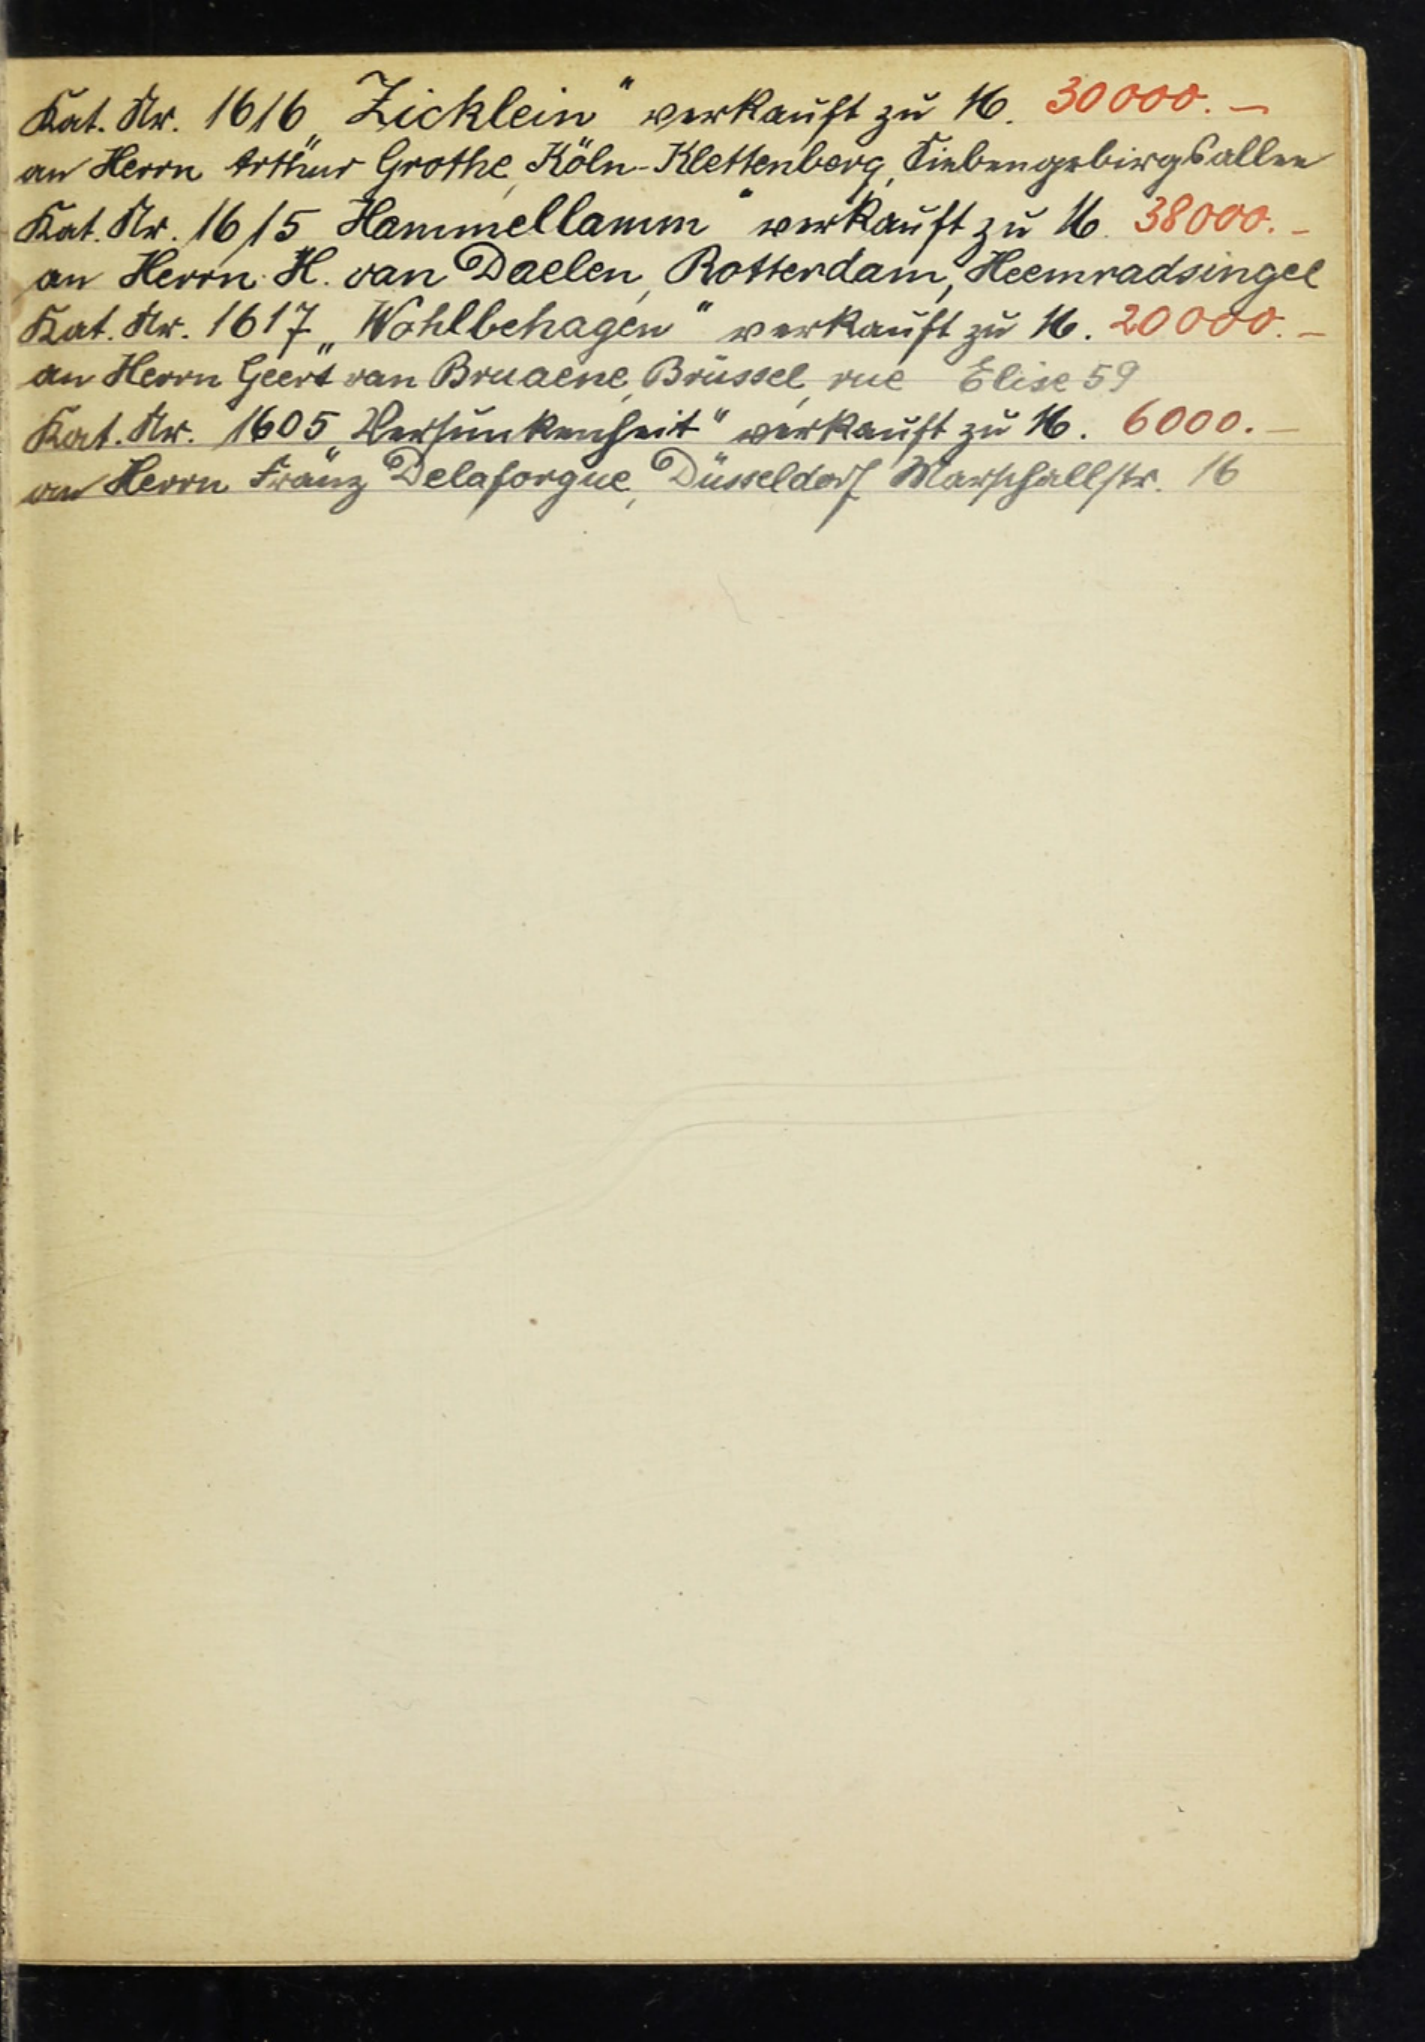 Kat. Nr. 1616 „Zicklein“ verkauft zu M. 30000.—
an Herrn Arthur Grothe, Köln-Klettenberg, Siebengebirgsallee
Kat. Nr. 1615 „Hammellamm“ verkauft zu M. 38000.—
an Herrn H. van Daelen, Rotterdam, Heemradsingel
Kat. Nr. 1617 „Wohlbehagen“ verkauft zu M. 20000.—
an Herrn Geert van Bruaene, Brüssel, rue Elise 59
Kat. Nr. 1605 „Versunkenheit“ verkauft zu M. 6000.—
an Herrn Franz Delaforgue, Düsseldorf Marschallstr. 16